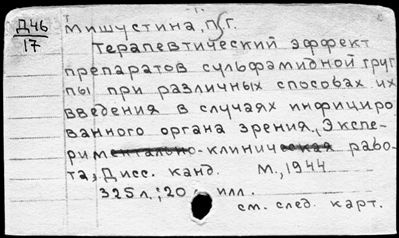 Д46
17
Мишустина, П.Г.
Терапевтический эффект
препаратов сульфамидной груп
пы при различных способах их
введения в случаях инфициро
ванного органа зрения, Экспе-
риментально-клиническая рабо-
та, Дисс. канд. М., 1944
325 л.; 20 илл.
см. след. карт.